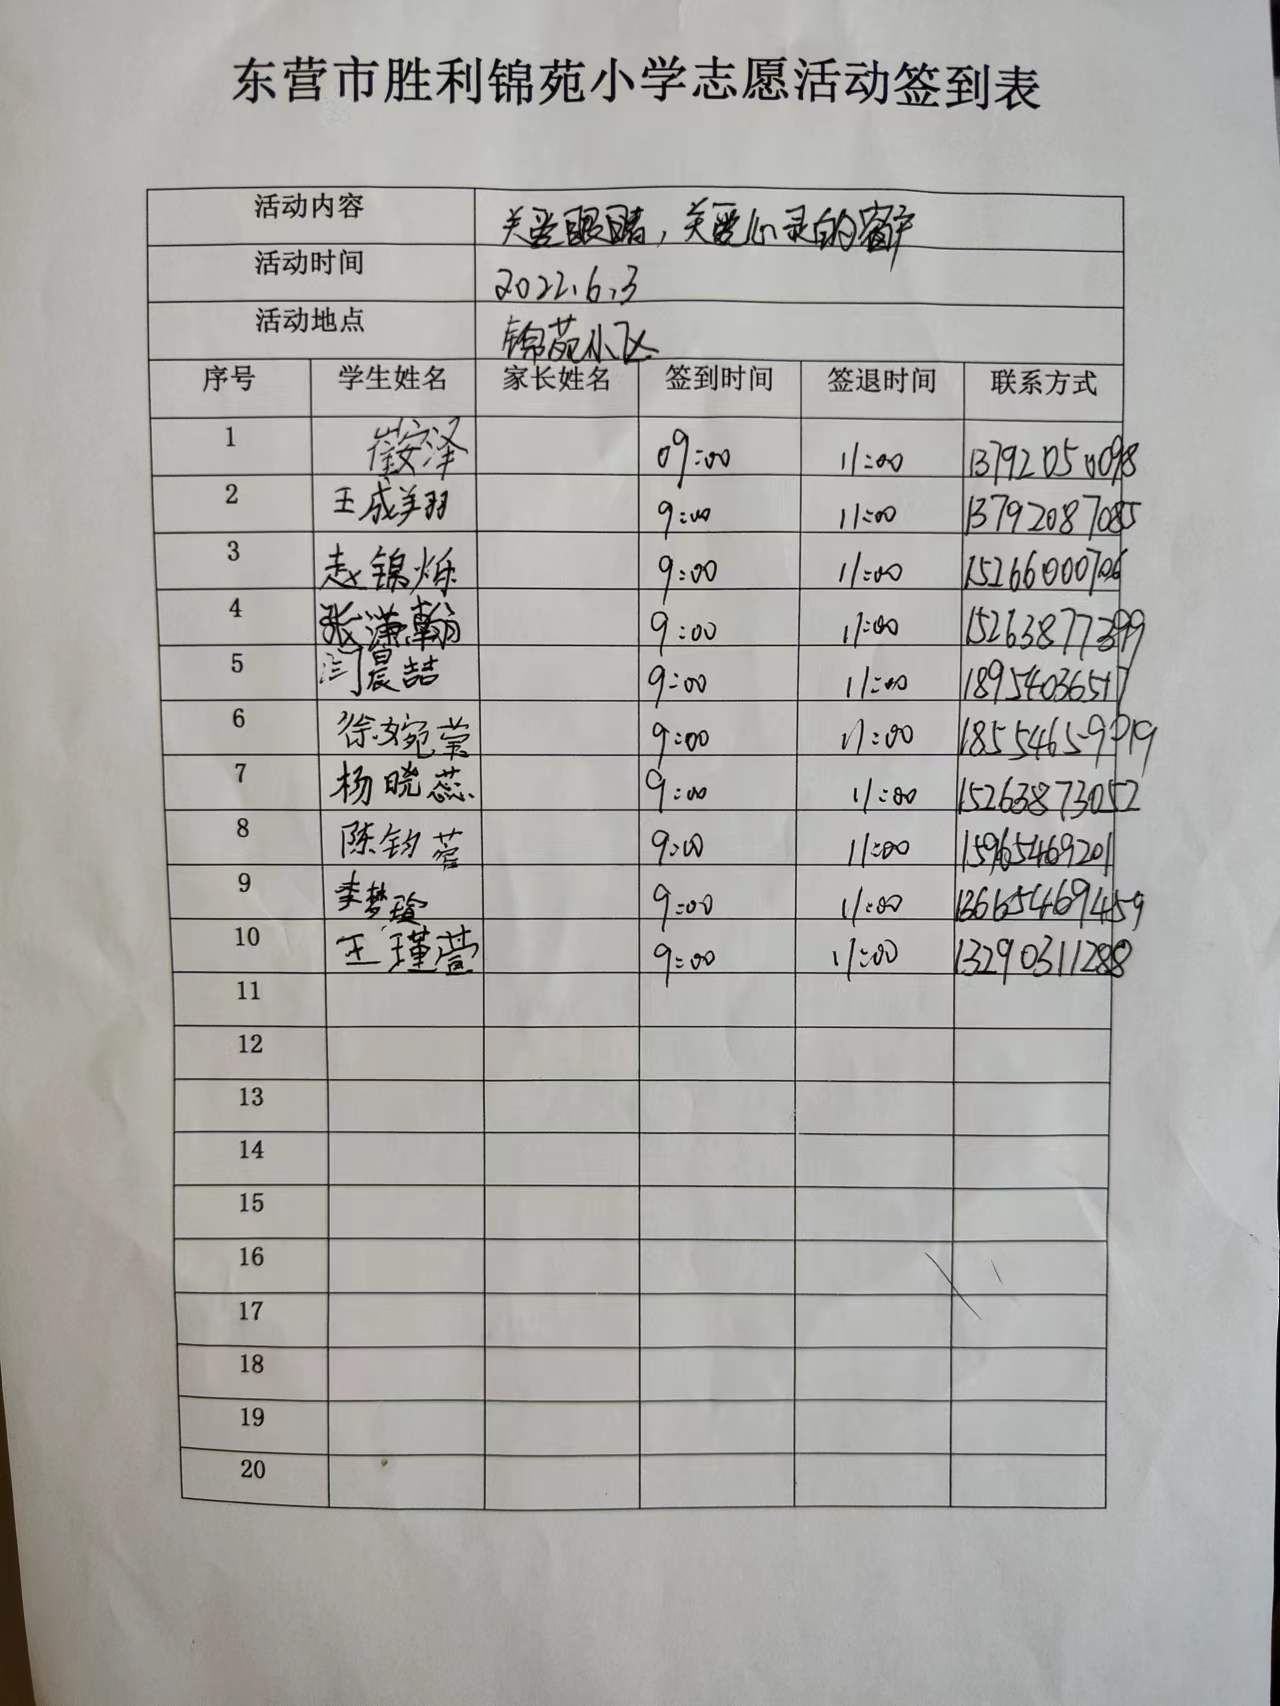 东营市胜利锦苑小学志愿活动签到表
活动内容 关爱眼睛，关爱心灵的窗户
活动时间 2022.6.3
活动地点 锦苑小区
序号 学生姓名 家长姓名 签到时间 签退时间 联系方式
1 崔安泽 09:00 11:00 13792050098
2 王成美羽 9:00 11:00 13792087085
3 赵锦烁 9:00 11:00 15266000706
4 张潇翰 9:00 11:00 15263877399
5 闫晨喆 9:00 11:00 18954036517
6 徐婉莹 9:00 11:00 18554659919
7 杨晓蕊 9:00 11:00 15263873052
8 陈钧蓉 9:00 11:00 15965469201
9 李梦璇 9:00 11:00 13665469459
10 王瑾萱 9:00 11:00 13290311288
11
12
13
14
15
16
17
18
19
20